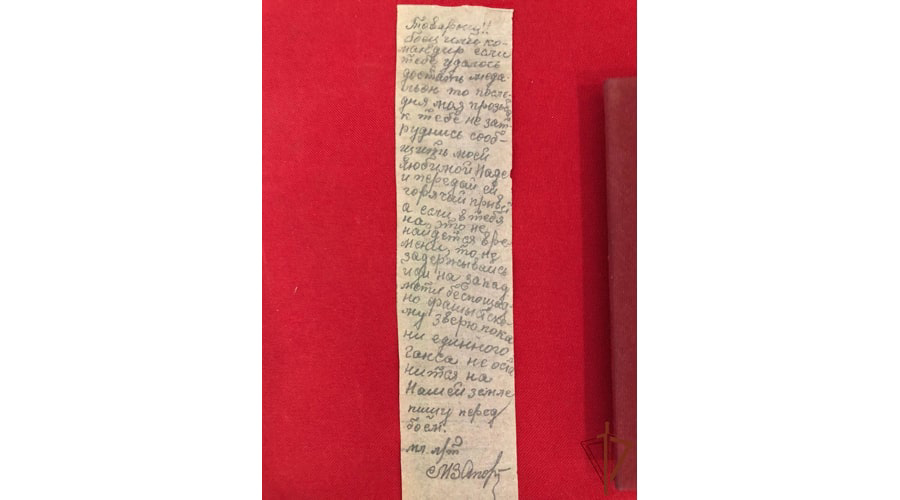 Товарищ!!
боец или ко-
мандир если
тебе удалось
достать меда-
льон то после-
дняя моя прозьба
к тебе не зат
руднись сооб-
щить моей
любимой Наде
и передай ей
горячий привет
а если в тебя
на это не
найдется вре-
мени, то не
задерживаись
иди на запад
мсти беспощад-
но фашыйско-
му зверю пока
ни единного
Ганса не оста
нится на
Нашей земле
пишу перед
боем.
мл. л/т